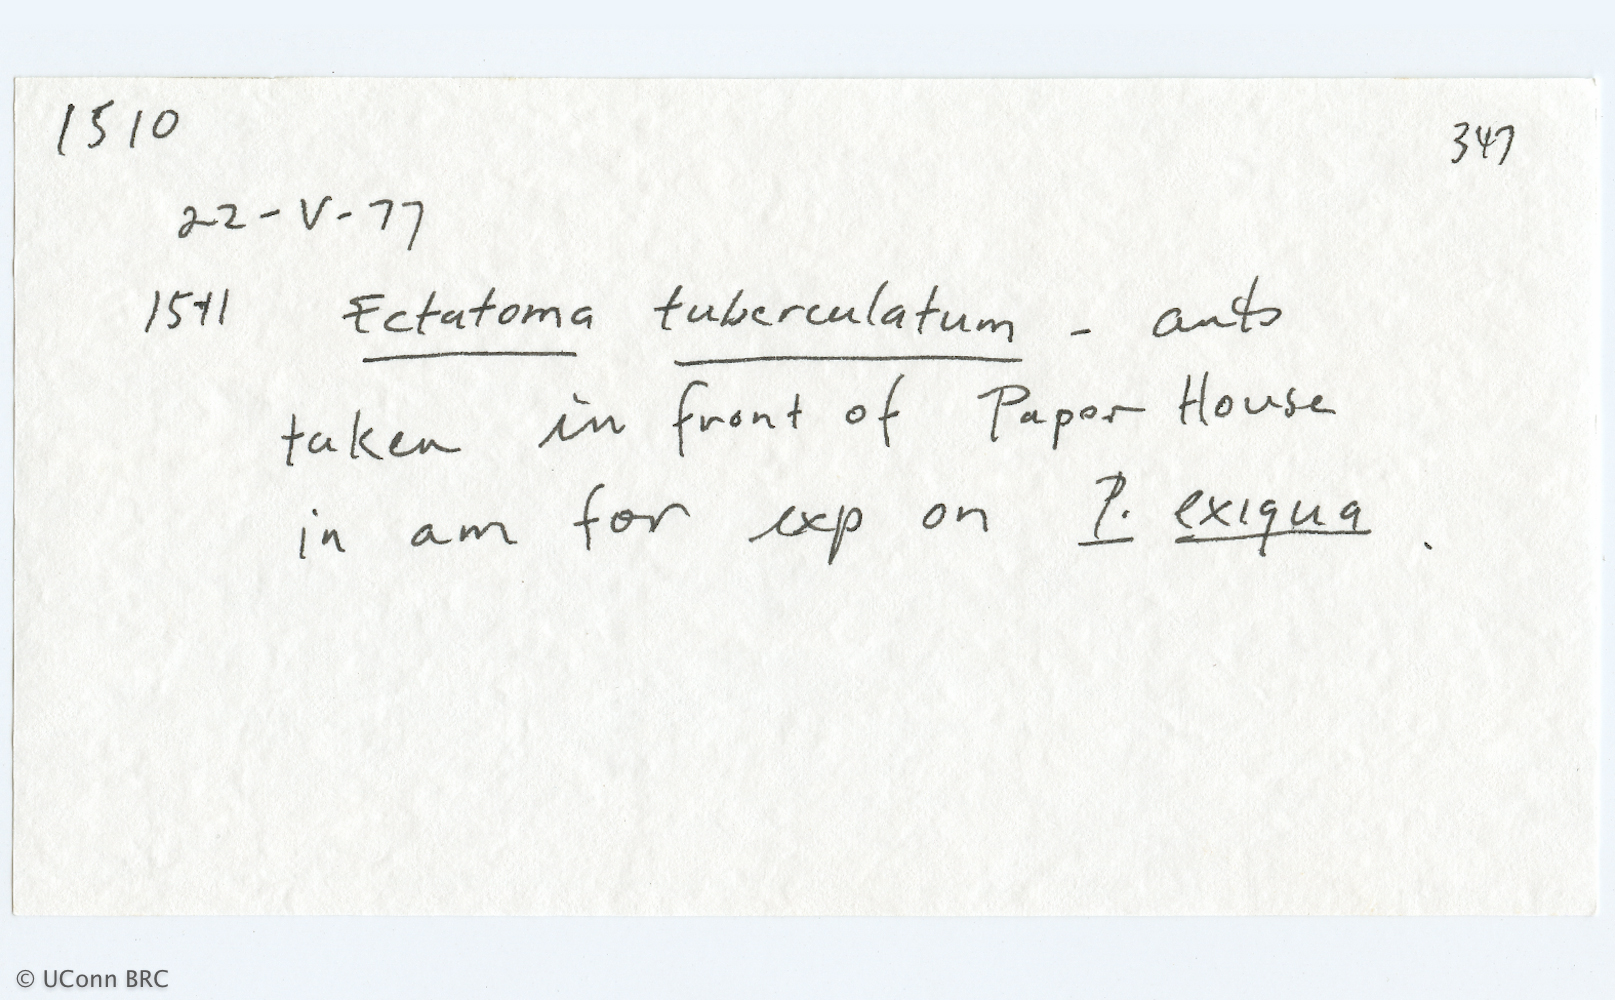 1510
347
22-V-77
1541 Ectatoma tuberculatum - ants
taken in front of Paper House
in am for exp on P. exigua.
© UConn BRC